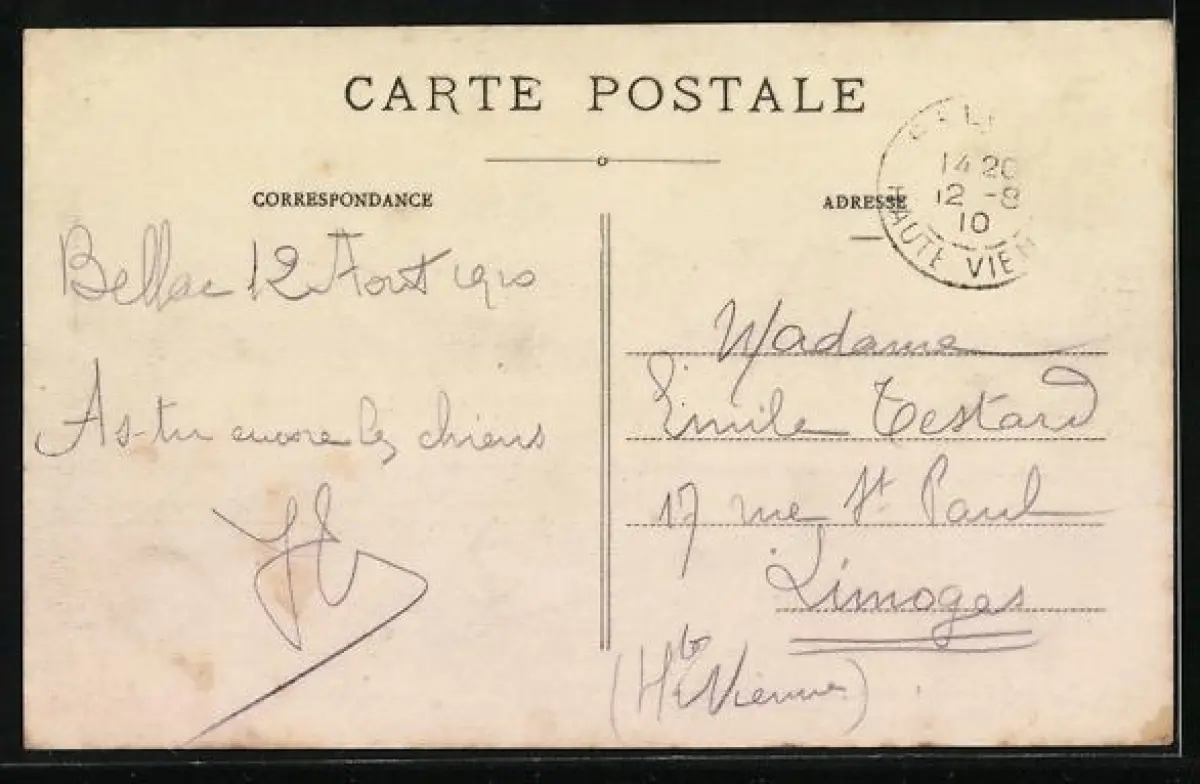 CARTE POSTALE
CORRESPONDANCE
Bellac 12 Août 1910
As-tu encore les chiens
ADRESSE
14 20
12 -8
10
HAUTE VIEN
Madame
Emile Testard
17 rue St Paul
Limoges
(Hte Vienne)